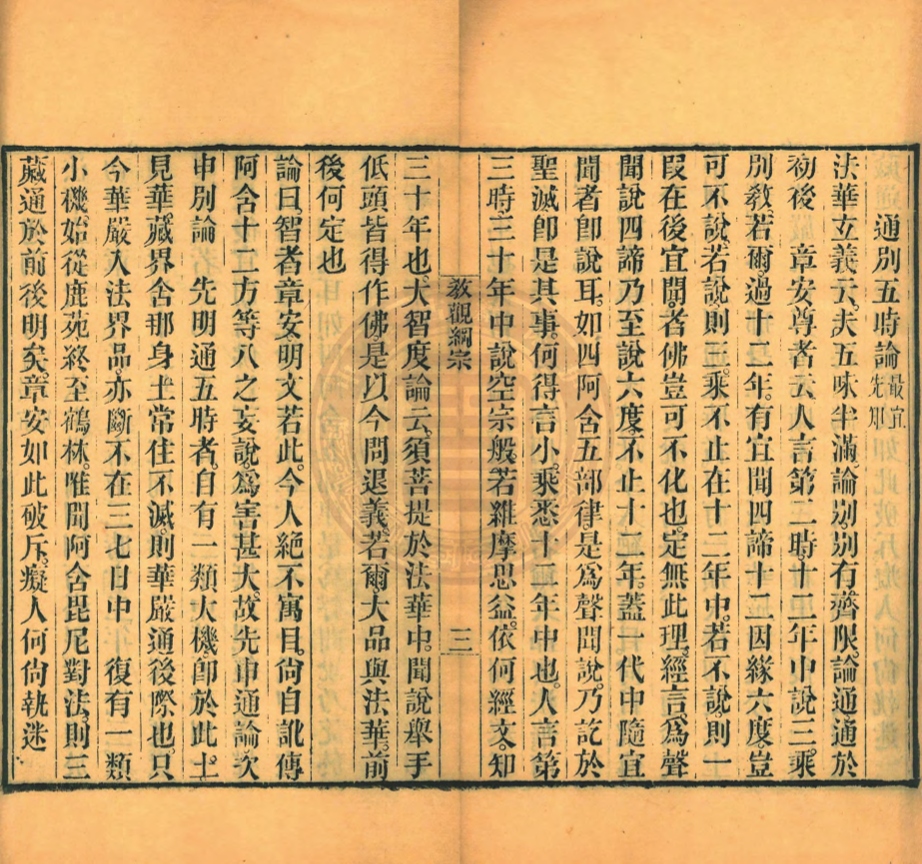 通別五時論最宜先知
法華立義云。夫五味半滿。論別。別有齊限。論通。通於
初後　章安尊者云。人言第二時。十二年中說三乘
別教。若爾。過十二年。有宜聞四諦十二因緣六度。豈
可不說。若說。則三乘不止在十二年中。若不說。則一
段在後宜聞者。佛豈可不化也。定無此理。經言。爲聲
聞說四諦。乃至說六度。不止十二年。蓋一代中隨宜
聞者卽說耳。如四阿含五部律。是爲聲聞說。乃訖於
聖滅。卽是其事。何得言小乘悉十二年中也。人言第
三時。三十年中說空宗般若維摩思益。依何經文。知
教觀綱宗　三
三十年也。大智度論云。須菩提於法華中。聞說舉手
低頭皆得作佛。是以今問退義。若爾。大品與法華。前
後何定也
論曰。智者章安。明文若此。今人絕不寓目。尙自訛傳
阿含十二方等八之妄說。爲害甚大。故先申通論。次
申別論　先明通五時者。自有一類大機。卽於此土
見華藏界。舍那身土。常住不滅。則華嚴通後際也。只
今華嚴入法界品。亦斷不在三七日中　復有一類
小機。始從鹿苑。終至鶴林。唯聞阿含毘尼對法。則三
藏通於前後明矣。章安如此破斥。癡人何尙執迷